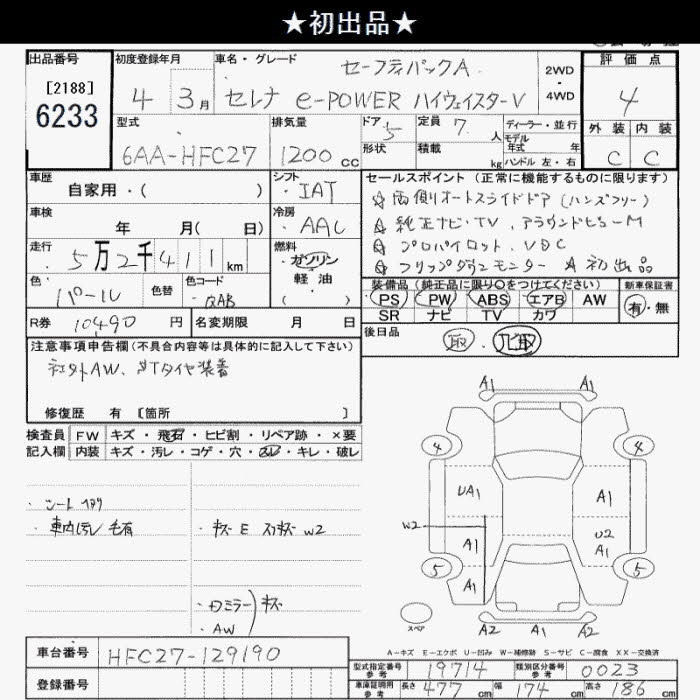 ★初出品★
出品番号
[2188]
6233
初度登録年月
4年 3月
車名・グレード
セーフティパックA
セレナ e-POWER ハイウェイスターV
2WD
-
4WD
評価点
4
外装 内装
C C
型式
6AA-HFC27
排気量
1200cc
ドア 5
定員 7人
形状
積載 kg
ディーラー・並行
モデル年式 年
ハンドル 左・右
車歴
自家用・( )
シフト
・IAT
車検
年 月( 日)
冷房
・AAC
走行
5万2千411km
燃料
・ガソリン
軽油
・( )
色
・パール
色替
色コード
・QAB
R券 10490円
名変期限 月 日
セールスポイント(正常に機能するものに限ります)
☆両側オートスライドドア(ハンズフリー)
☆純正ナビ・TV、アラウンドビューM
☆プロパイロット、VDC
☆フリップダウンモニター ☆初出品
装備品(純正品に限り○をつけてください)
PS PW ABS エアB AW
SR ナビ TV カワ
新車保証書
有・無
後日品
取
注意事項申告欄(不具合内容等は具体的に記入して下さい)
社外AW、STタイヤ装着
修復歴 有 [箇所 ]
検査員記入欄
FW キズ・飛石・ヒビ割・リペア跡・×要
内装 キズ・汚レ・コゲ・穴・スレ・キレ・破レ
・シート
・車内汚レ 毛有
・キズE スリキズ W2
・Dミラー
・AW
キズ
A1 A1
4 4
UA1 A1
W2
A1
U2
A1
5 5
A1
A2 A1 A2
スペア
A-キズ E-エクボ U-凹み W-補修跡 S-サビ C-腐食 XX-交換済
車台番号 HFC27-129190
登録番号
型式指定番号参考 19714
類別区分番号参考 0023
車庫証明用参考 長さ 477cm 幅 174cm 高さ 186cm